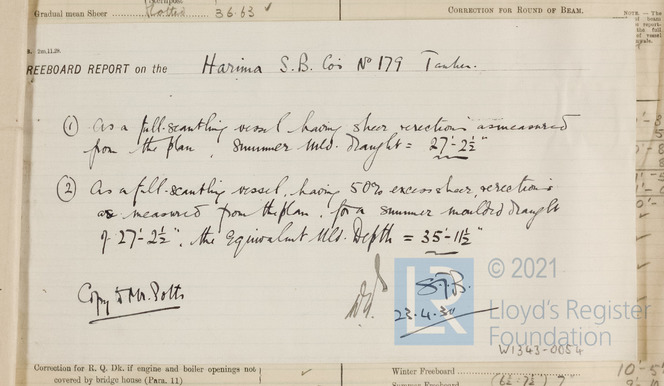 Gradual mean Sheer 36.63
CORRECTION FOR ROUND OF BEAM.
NOTE. — The
R. 2m.11.29.
REEBOARD REPORT on the Harima S.B. Co's No 179 Tanker.
(1) As a full-scantling vessel having sheer, erections as measured
from the plan, Summer Mld. Draught = 27'-2½"
(2) As a full-scantling vessel, having 50% excess sheer, erections
as measured from the plan, for a summer moulded draught
of 27'-2½", the Equivalent Mld. Depth = 35'-11½"
Copy to Mr. Potts
S.F.B.
23.4.31
LR
© 2021
Lloyd's Register
Foundation
W1343-0054
Correction for R. Q. Dk. if engine and boiler openings not
covered by bridge house (Para. 11)
Winter Freeboard